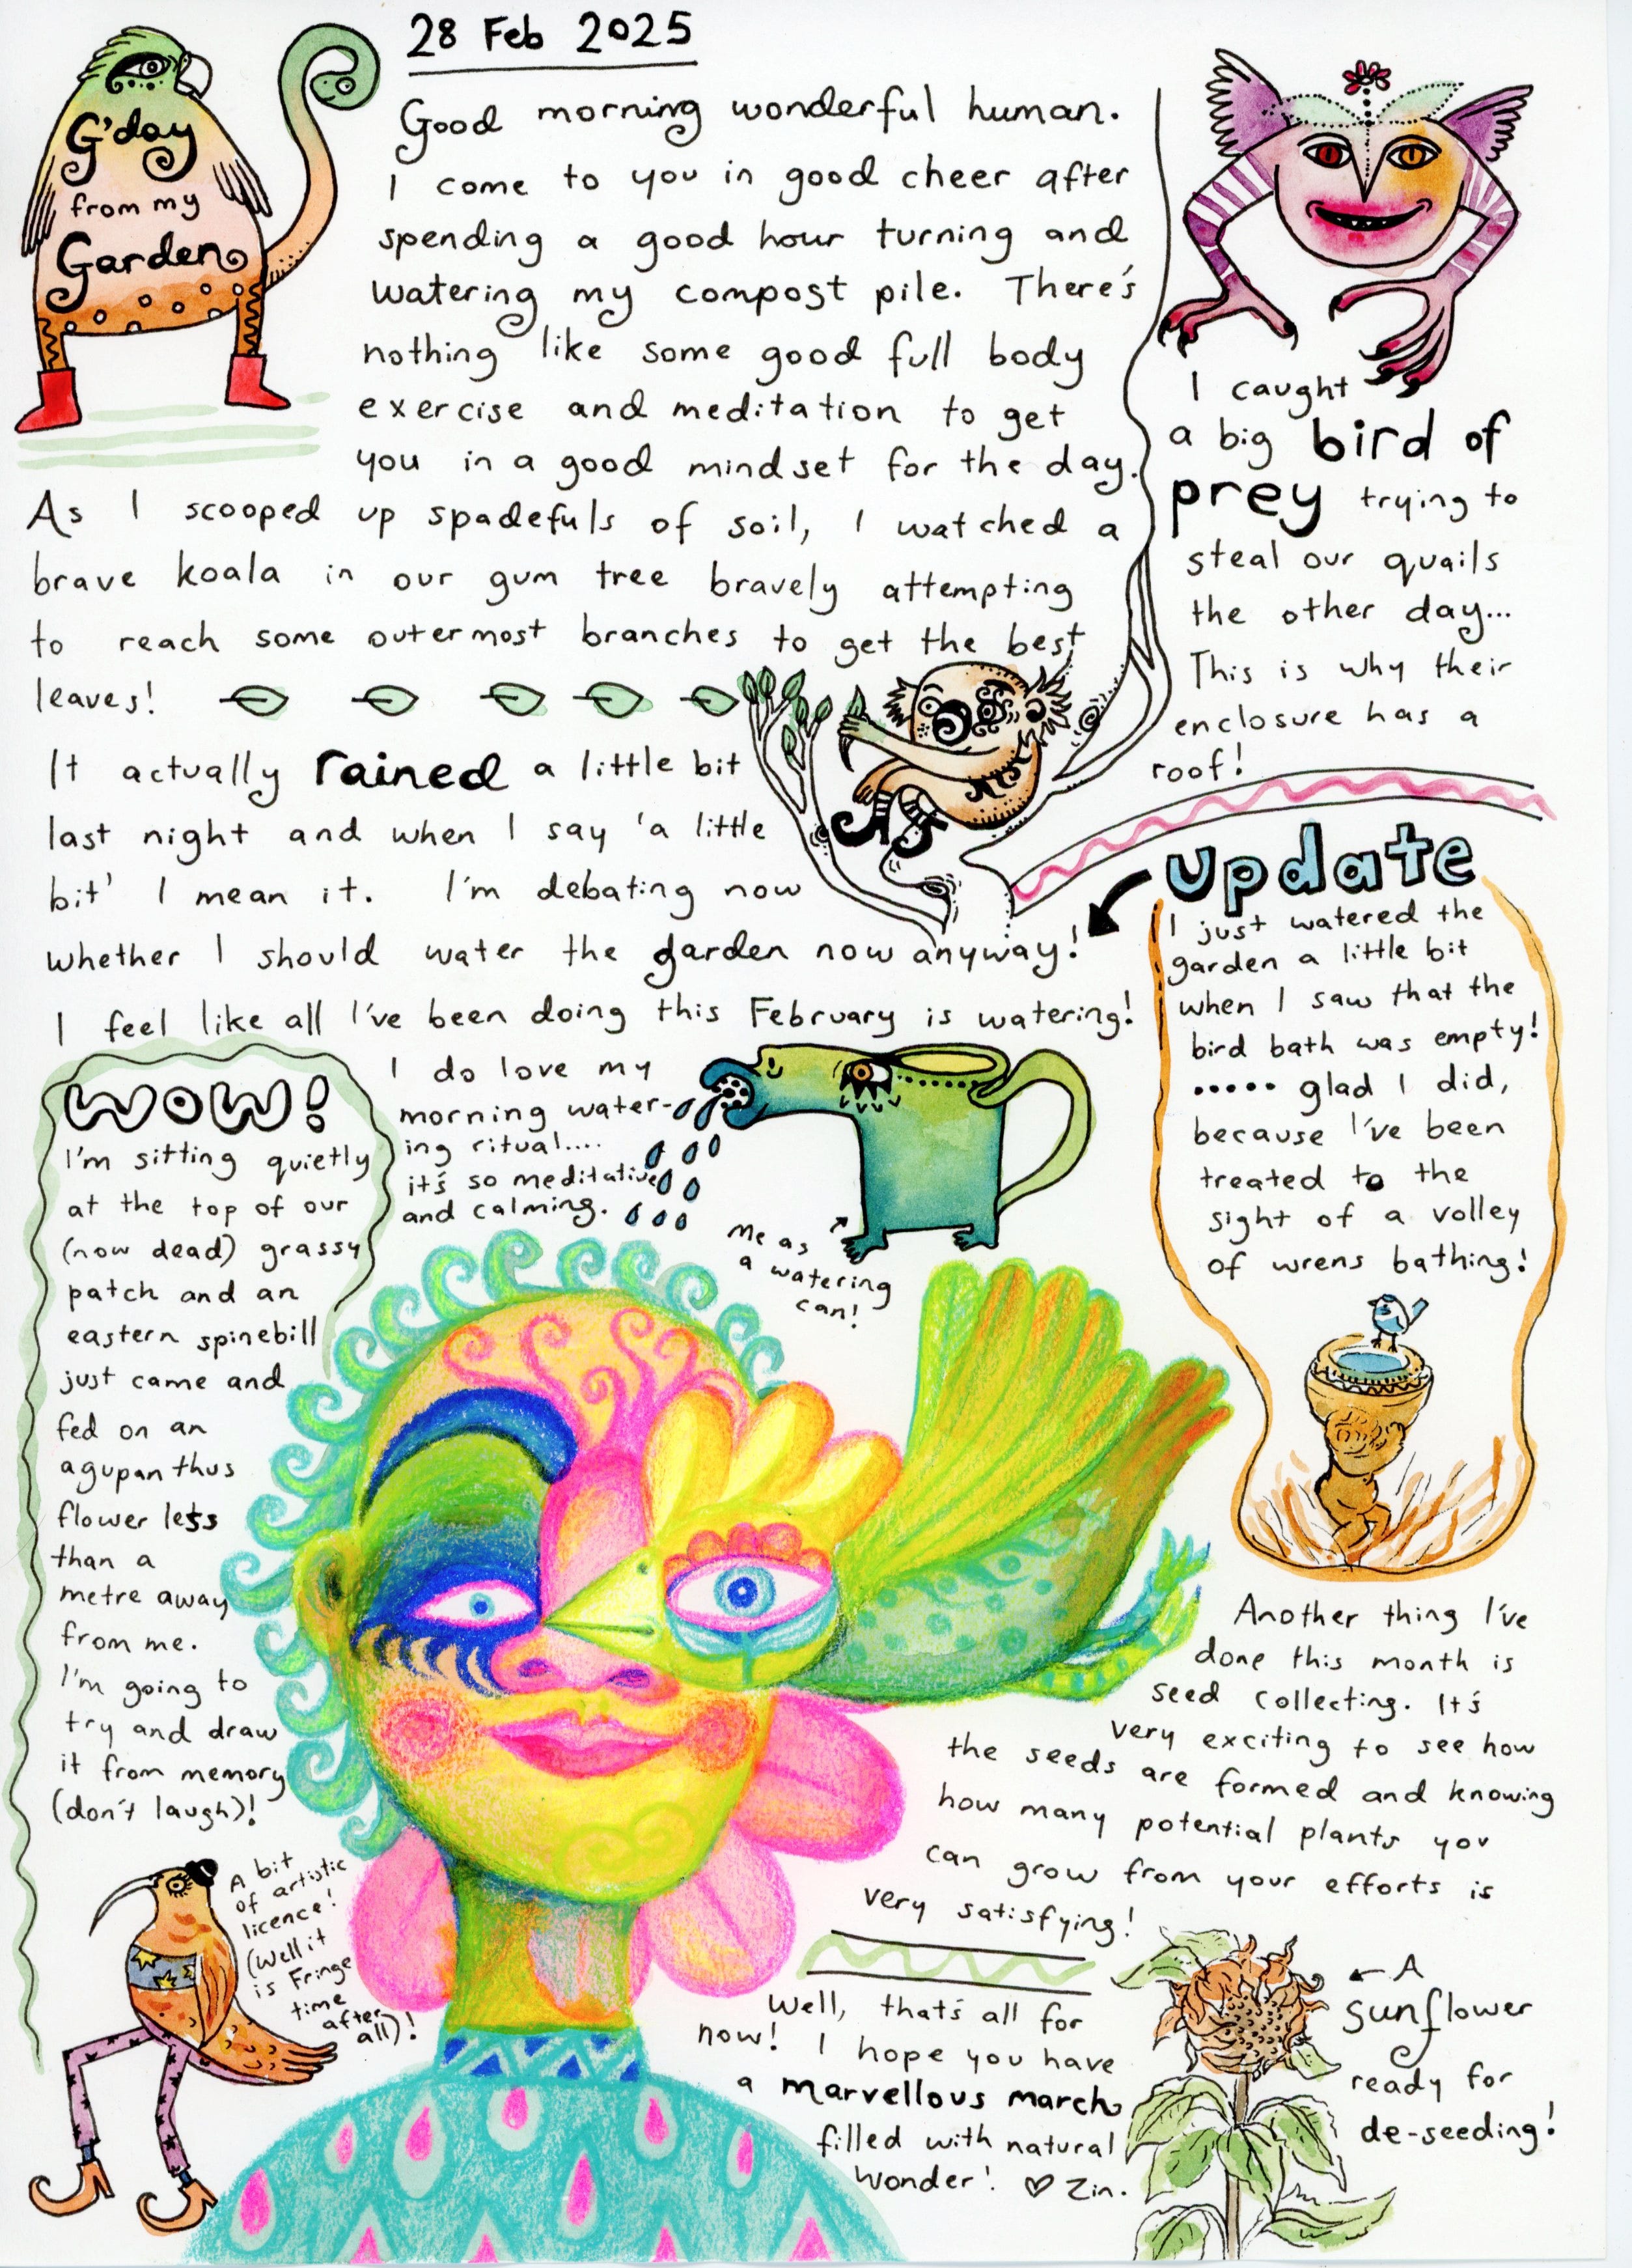 28 Feb 2025
G'day
from my
Garden
Good morning wonderful human.
I come to you in good cheer after
spending a good hour turning and
watering my compost pile. There's
nothing like some good full body
exercise and meditation to get
you in a good mindset for the day.
As I scooped up spadefuls of soil, I watched a
brave koala in our gum tree bravely attempting
to reach some outermost branches to get the best
leaves!
I caught
a big bird of
prey trying to
steal our quails
the other day...
This is why their
enclosure has a
roof!
It actually rained a little bit
last night and when I say 'a little
bit' I mean it. I'm debating now
whether I should water the garden now anyway!
Update
I just watered the
garden a little bit
when I saw that the
bird bath was empty!
..... glad I did,
because I've been
treated to the
sight of a volley
of wrens bathing!
I feel like all I've been doing this February is watering!
I do love my
morning water-
ing ritual....
it's so meditative
and calming.
Me as
a watering
can!
WOW!
I'm sitting quietly
at the top of our
(now dead) grassy
patch and an
eastern spinebill
just came and
fed on an
agupanthus
flower less
than a
metre away
from me.
I'm going to
try and draw
it from memory
(don't laugh)!
A bit
of artistic
licence!
(Well it
is Fringe
time
after
all)!
Another thing I've
done this month is
seed collecting. It's
very exciting to see how
the seeds are formed and knowing
how many potential plants you
can grow from your efforts is
very satisfying!
Well, that's all for
now! I hope you have
a marvellous march
filled with natural
wonder! ♡ Zin.
← A
sunflower
ready for
de-seeding!